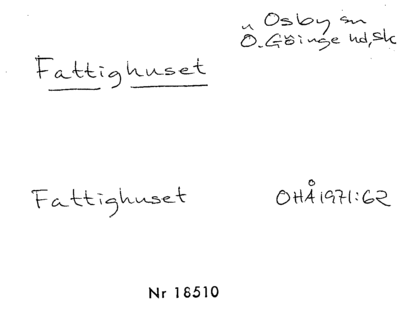 Osby sn
Ö. Göinge hd, Sk
Fattighuset
Fattighuset OHÅ 1971:62
Nr 18510